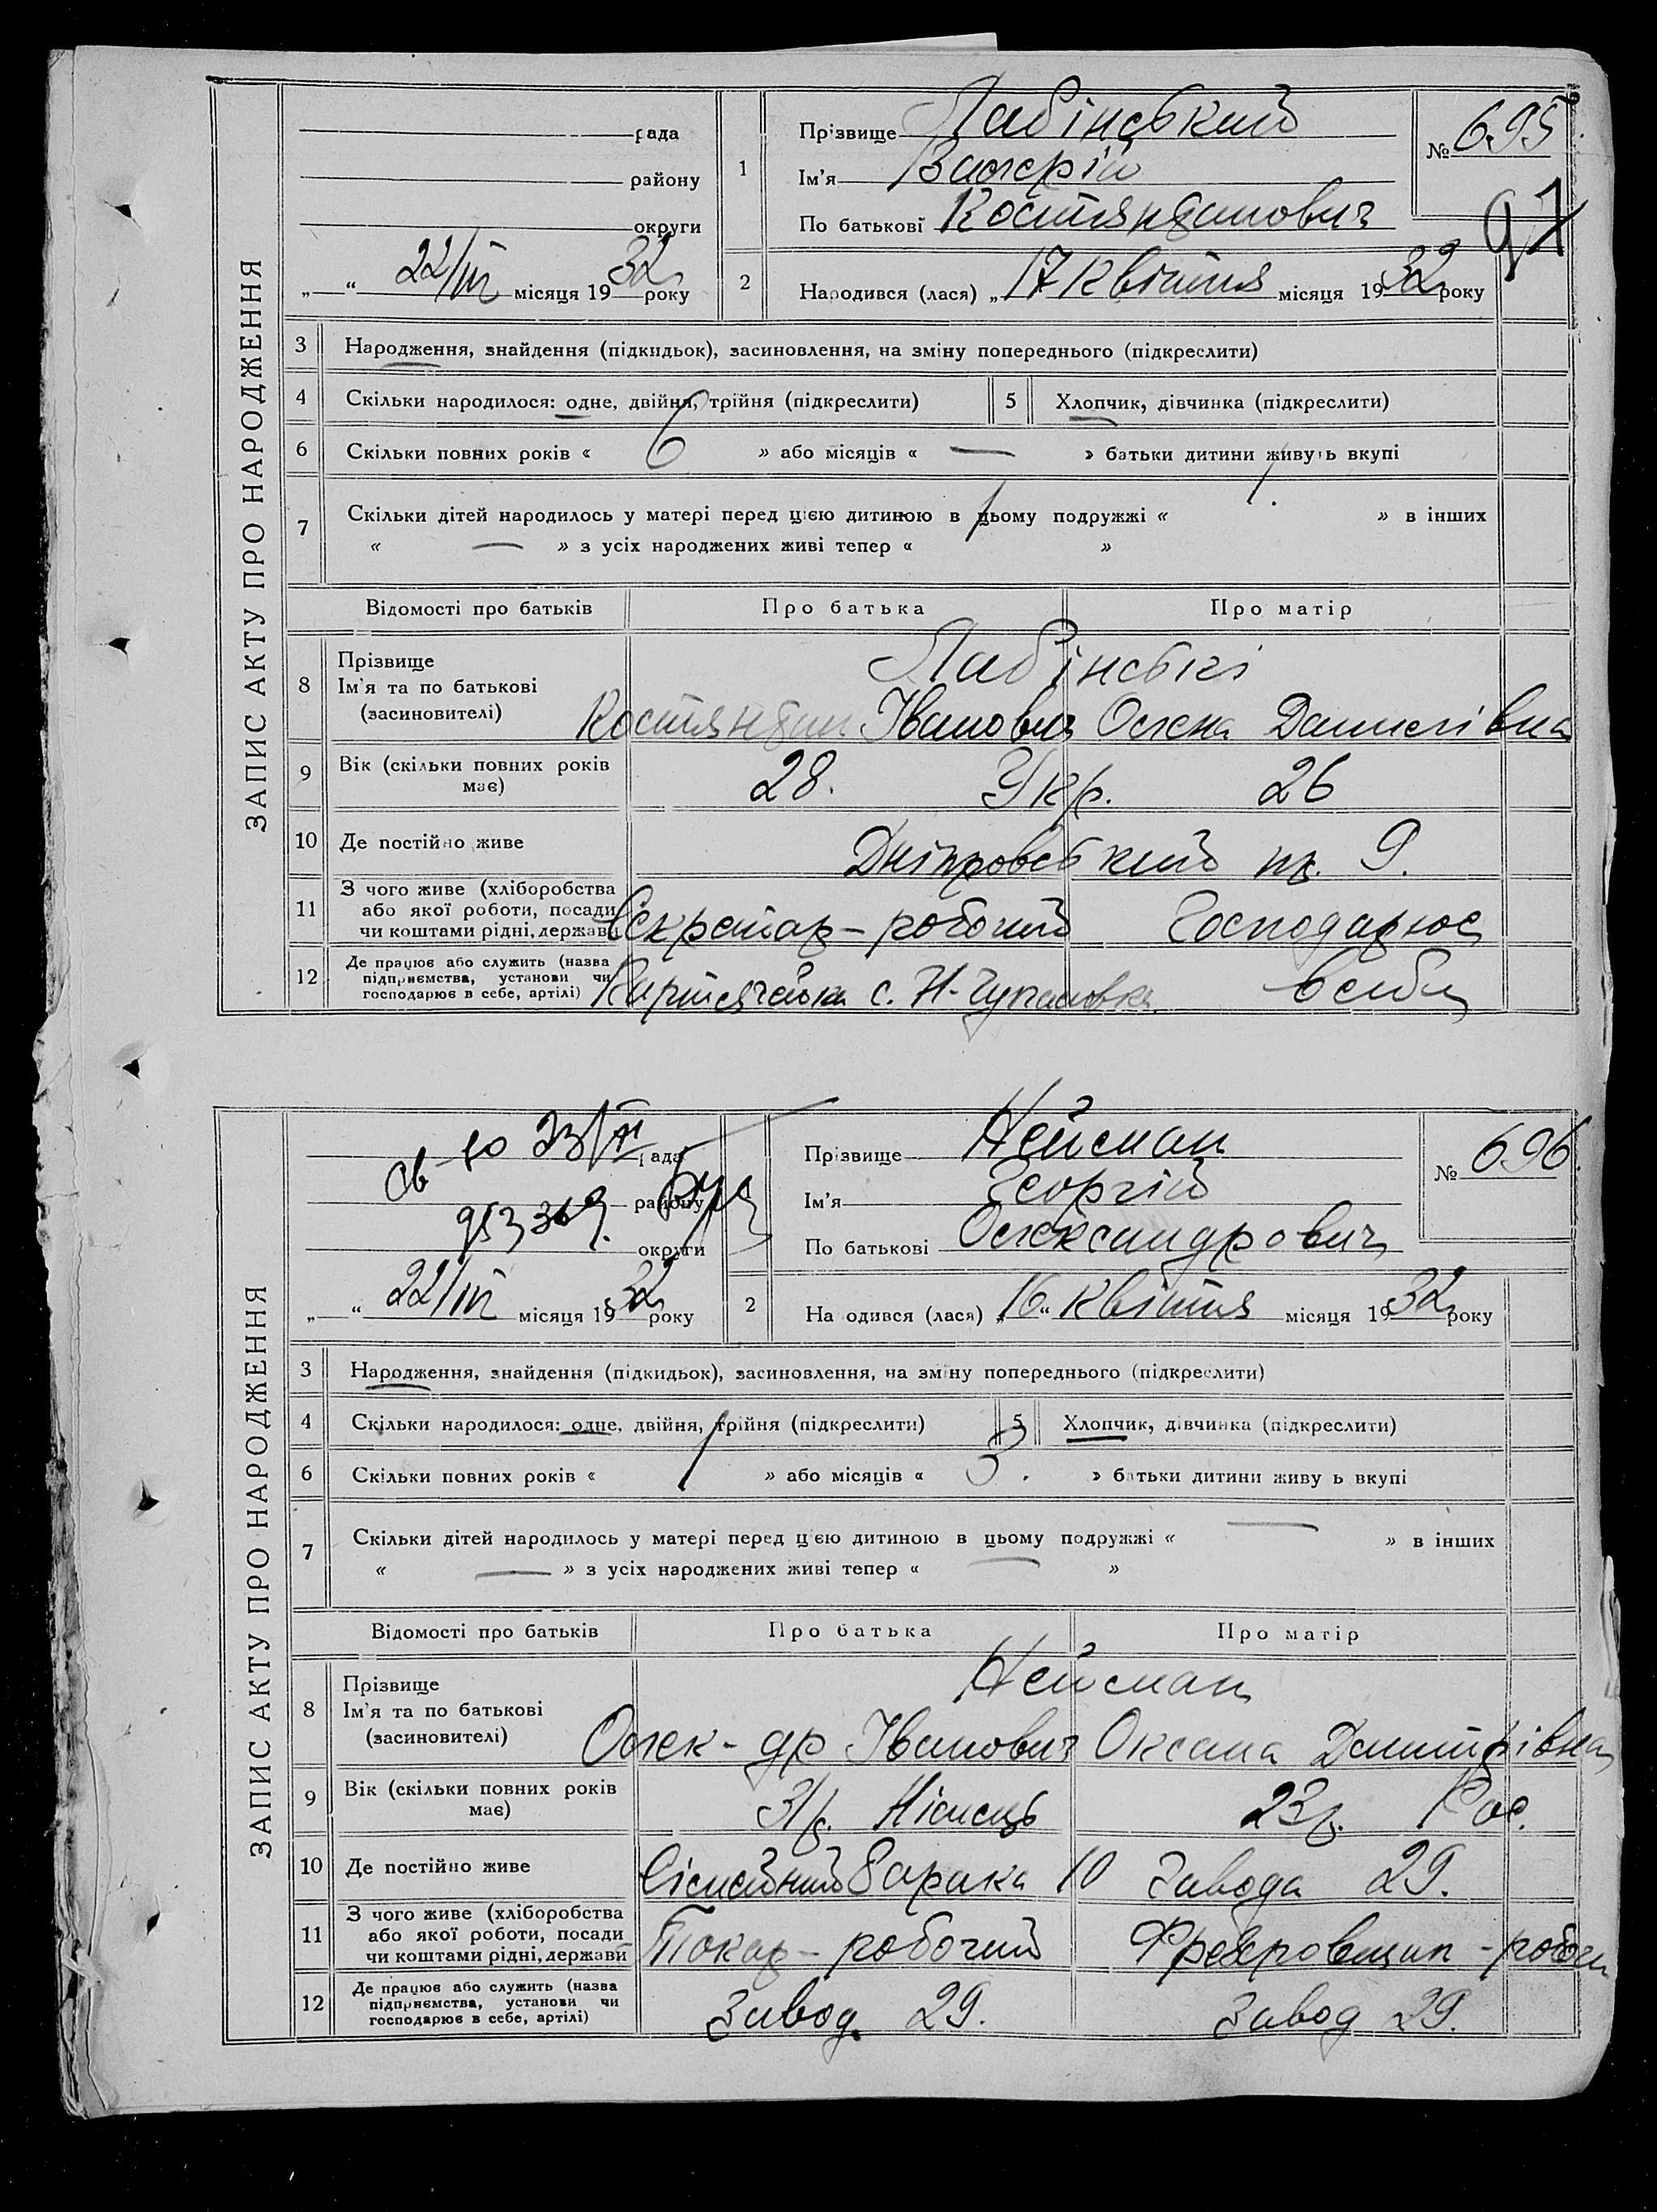 ЗАПИС АКТУ ПРО НАРОДЖЕННЯ
рада
району
округи
22/IV місяця 1932 року
1
Прізвище Лабінський
Ім'я Валерій
По батькові Костянтинович
№ 695
97
2
Народився (лася) „17 квітня місяця 1932 року
3 Народження, знайдення (підкидьок), засиновлення, на зміну попереднього (підкреслити)
4 Скільки народилося: одне, двійня, трійня (підкреслити) 5 Хлопчик, дівчинка (підкреслити)
6 Скільки повних років « 6 » або місяців « — » батьки дитини живуть вкупі
7 Скільки дітей народилось у матері перед цією дитиною в цьому подружжі « 1. » в інших
« — » з усіх народжених живі тепер « 1 »
Відомості про батьків Про батька Про матір
8 Прізвище
Ім'я та по батькові
(засиновителі)
Лабінські
Костянтин Іванович Олена Данилівна
9 Вік (скільки повних років має) 28. Укр. 26
10 Де постійно живе Дніпровський пр. 9.
11 З чого живе (хліборобства або якої роботи, посади чи коштами рідні, держави
Секретар – робочий Господарює
12 Де працює або служить (назва підприємства, установи чи господарює в себе, артілі)
с. Н-
в себе
ЗАПИС АКТУ ПРО НАРОДЖЕННЯ
до 23/VI
рада
району
округи
22/IV місяця 1932 року
Прізвище Нейман
Ім'я Георгій
По батькові Олександрович
№ 696.
2
На одився (лася) „16“ квітня місяця 1932 року
3 Народження, знайдення (підкидьок), засиновлення, на зміну попереднього (підкреслити)
4 Скільки народилося: одне, двійня, трійня (підкреслити) 5 Хлопчик, дівчинка (підкреслити)
6 Скільки повних років « 1 » або місяців « 3. » батьки дитини живу ь вкупі
7 Скільки дітей народилось у матері перед цією дитиною в цьому подружжі « — » в інших
« — » з усіх народжених живі тепер « — »
Відомості про батьків Про батька Про матір
8 Прізвище
Ім'я та по батькові
(засиновителі)
Нейман
Олек-др Іванович Оксана Дмитрівна
9 Вік (скільки повних років має) 31р. Німець 23р. Рос.
10 Де постійно живе Сімейний барака 10 Завода 29.
11 З чого живе (хліборобства або якої роботи, посади чи коштами рідні, держави
Токар – робочий Фрезеровщик – робочи
12 Де працює або служить (назва підприємства, установи чи господарює в себе, артілі)
Завод 29. Завод 29.